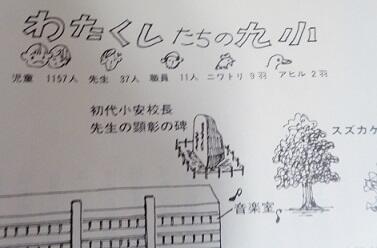 わたくしたちの九小
児童 1157人 先生 37人 職員 11人 ニワトリ 9羽 アヒル 2羽
初代小安校長
先生の顕彰の碑
スズカケ
音楽室